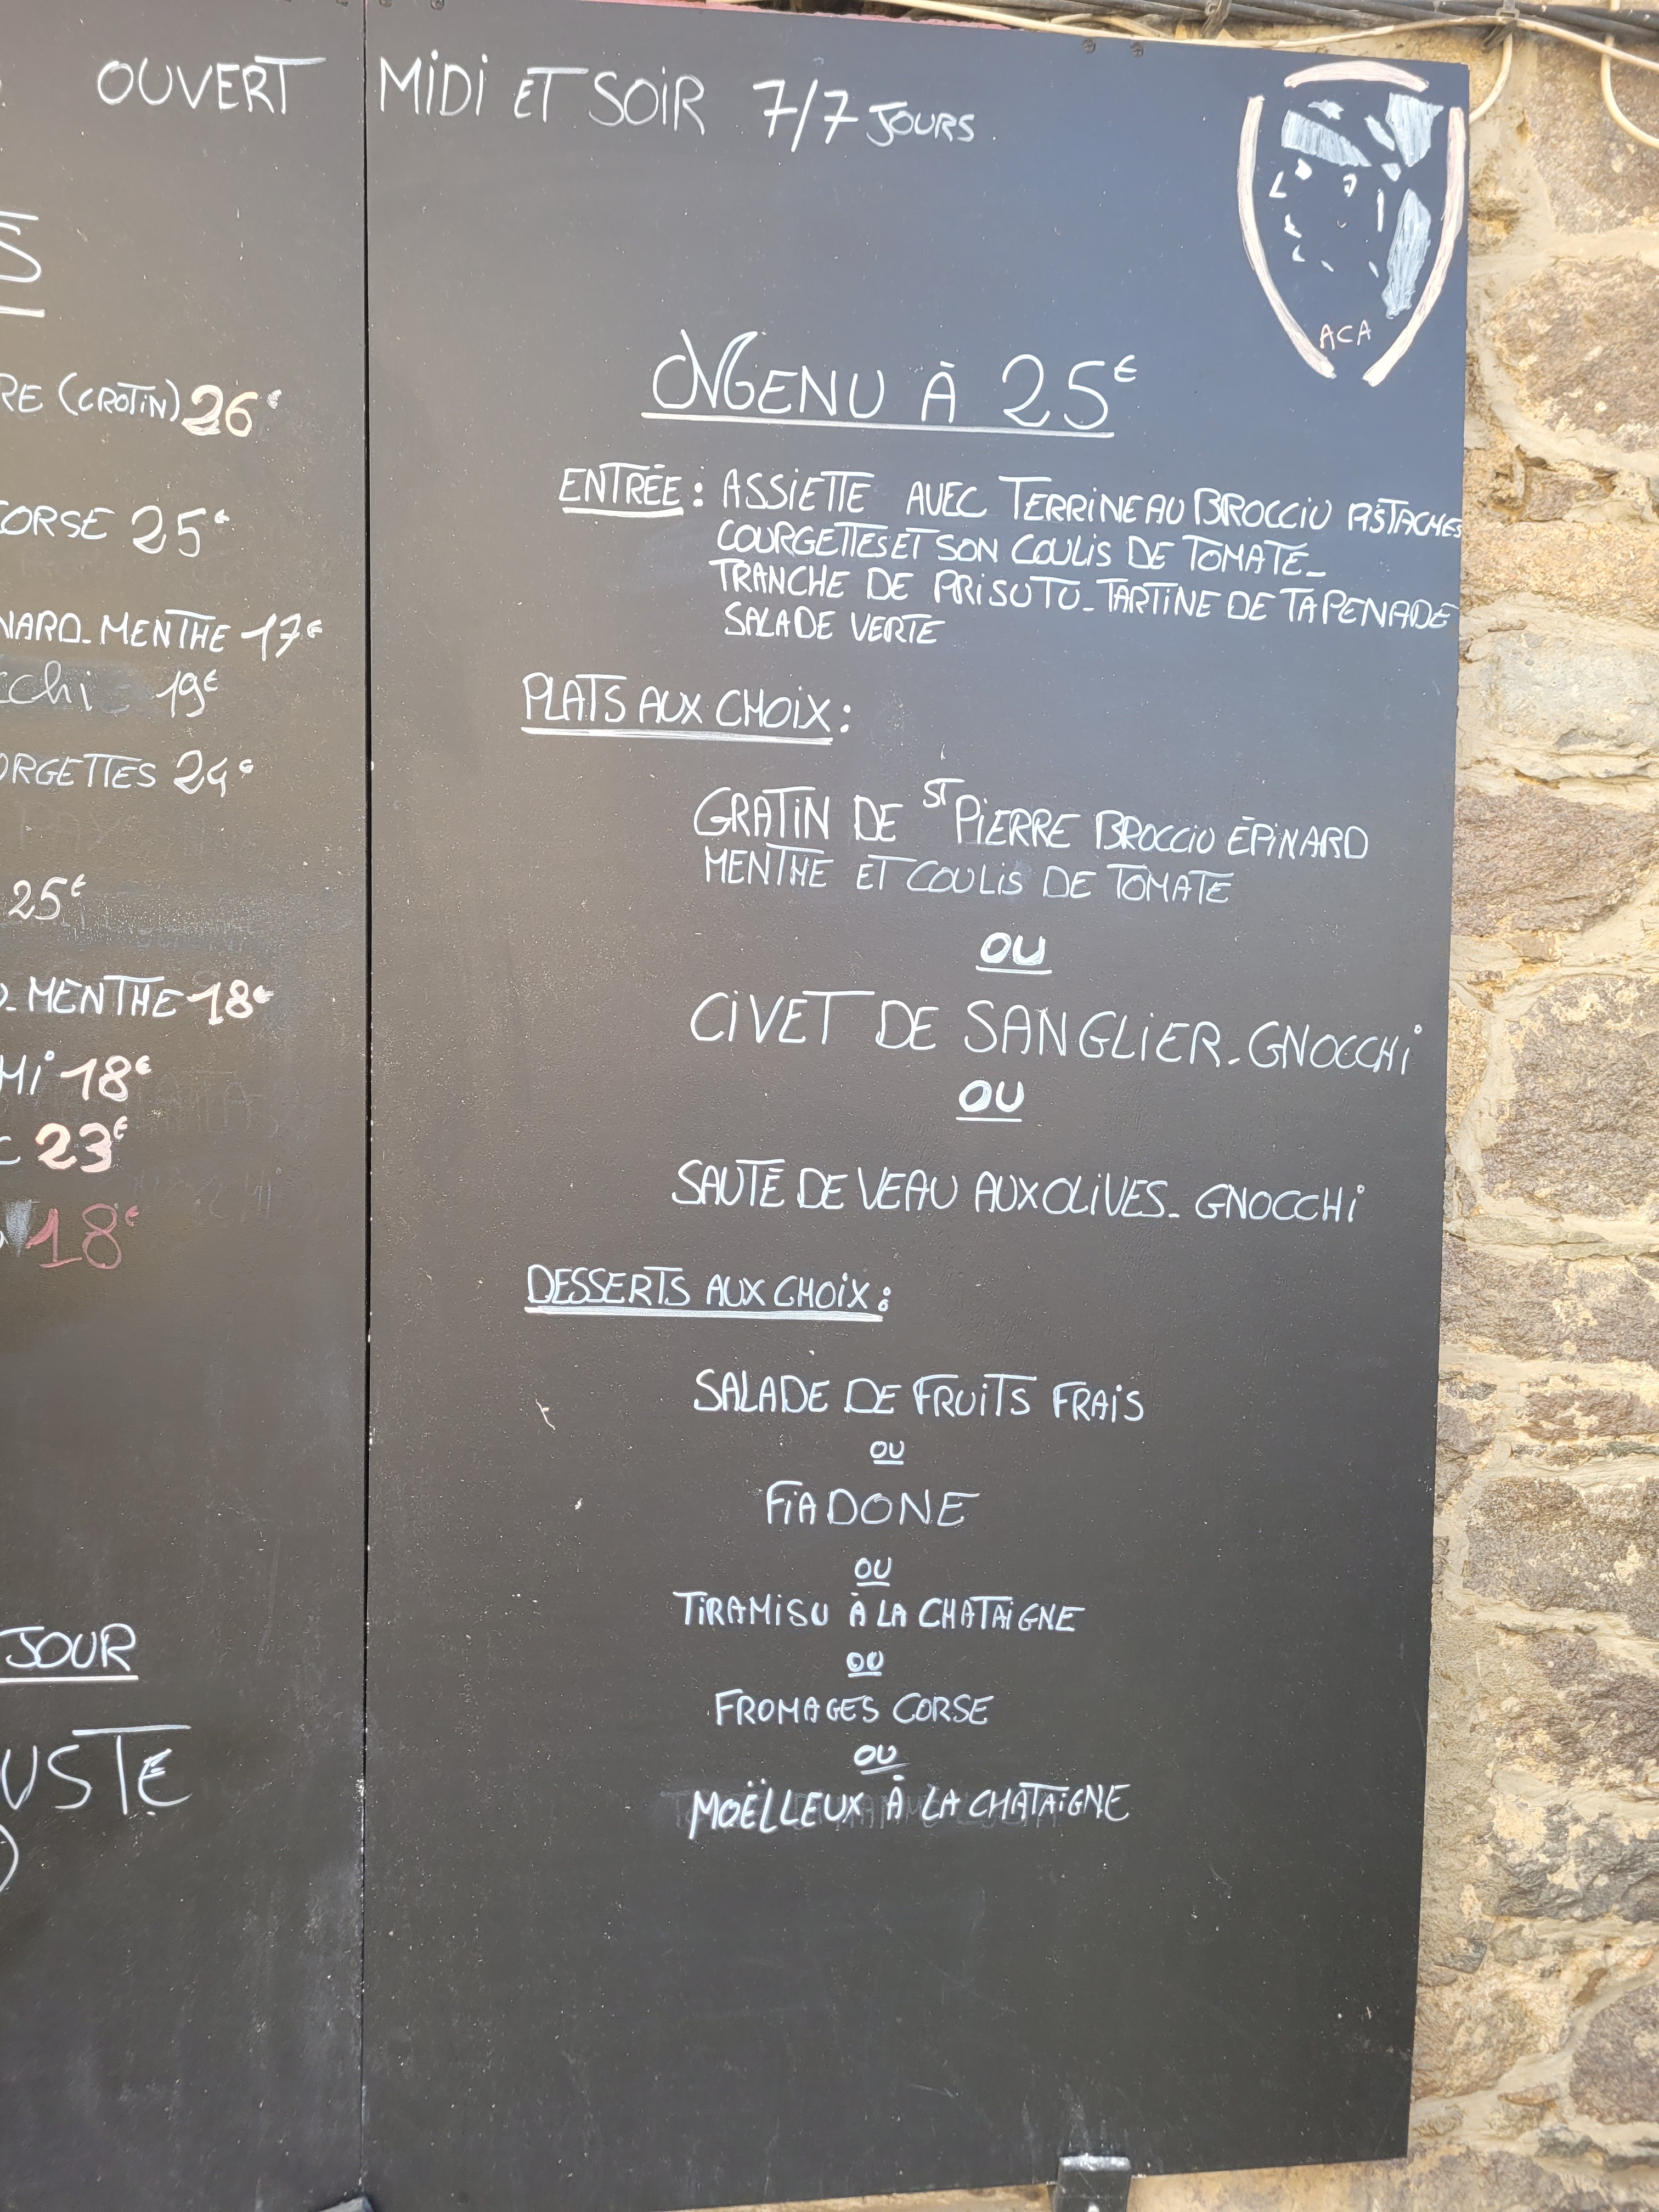 OUVERT MIDI ET SOIR 7/7 JOURS
S
RE (CROTIN) 26€
CORSE 25€
NARD_MENTHE 17€
cchi 19€
ORGETTES 24€
25€
_MENTHE 18€
HI 18€
C 23€
18€
JOUR
USTE
)
ACA
MENU À 25€
ENTRÉE : ASSIETTE AVEC TERRINE AU BROCCIU PISTACHES
COURGETTES ET SON COULIS DE TOMATE_
TRANCHE DE PRISUTU_TARTINE DE TAPENADE
SALADE VERTE
PLATS AUX CHOIX :
GRATIN DE ST PIERRE BROCCIU ÉPINARD
MENTHE ET COULIS DE TOMATE
OU
CIVET DE SANGLIER_GNOCCHI
OU
SAUTÉ DE VEAU AUX OLIVES_ GNOCCHI
DESSERTS AUX CHOIX :
SALADE DE FRUITS FRAIS
OU
FIADONE
OU
TIRAMISU À LA CHATAIGNE
OU
FROMAGES CORSE
OU
MOËLLEUX À LA CHATAIGNE